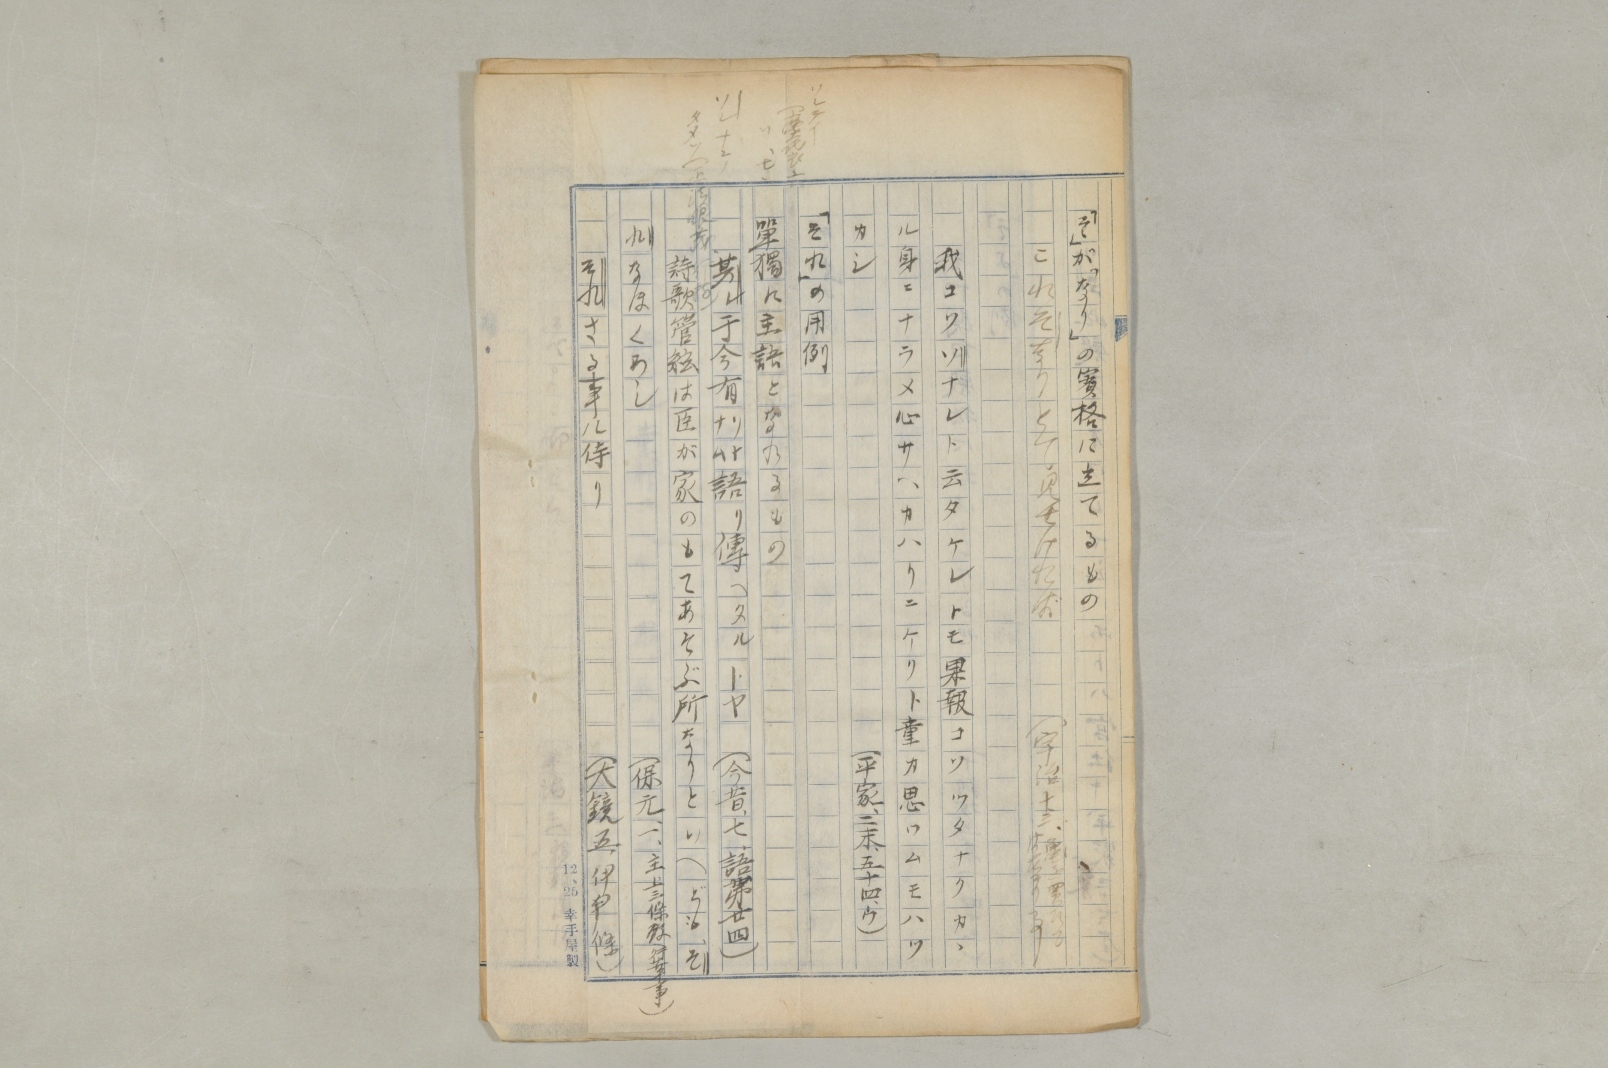 「そ」が「なり」の賓格に立てるもの
これぞそなりとて見せければ
我コソソナレト云タケレトモ果報コソツタナクカヽ
ル身ニナラメ心サヘカハリニケリト童カ思ワムモハツ
カシ (平家、二末、五十四、ウ)
「それ」の用例
單獨に主語となれるもの
其レ于今有ナリ此ク語リ傳ヘタルトヤ (今昔、七、語第廿四)
詩歌管絃は臣が家のもてあそぶ所なりといへども、そ
れなほくあし (保元、一、)
それさる事に侍り (大鏡五、伊尹條)
12、25 幸手屋製